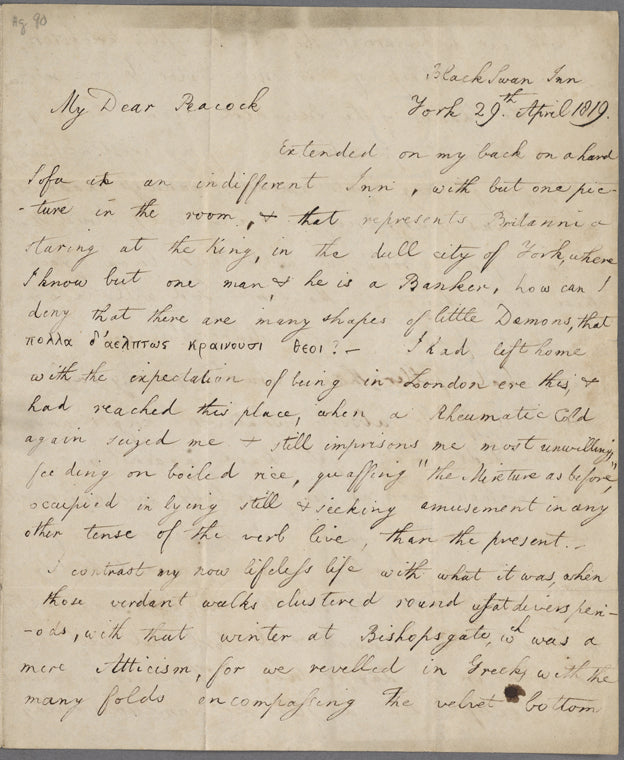 Ag 90
Black Swan Inn
My Dear Peacock York 29.th April 1819.
Extended on my back on a hard
Sofa at an indifferent Inn, with but one pic-
-ture in the room, & that represents Britannia
staring at the King, in the dull city of York, where
I know but one man, & he is a Banker, how can I
deny that there are many shapes of little Demons, that
πολλα δ'αελπτως κραινουσι θεοι? — I had left home
with the expectation of being in London ere this, &
had reached this place, when a Rheumatic Cold
again seized me & still imprisons me most unwilling,
feeding on boiled rice, quaffing "the Mixture as before,"
occupied in lying still & seeking amusement in any
other tense of the verb live, than the present. —
I contrast my now lifeless life with what it was, when
those verdant walks clustered round us at divers peri-
-ods, with that winter at Bishopsgate, wh was a
mere Atticism, for we revelled in Greek, with the
many folds encompassing the velvet bottom